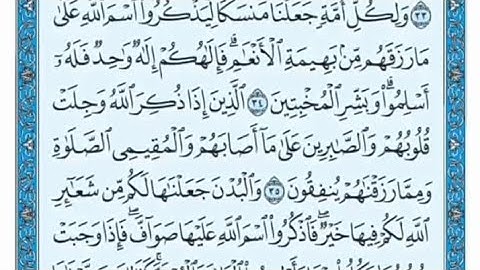 ٣٣ وَلِكُلِّ أُمَّةٍ جَعَلْنَا مَنسَكًا لِّيَذْكُرُوا۟ ٱسْمَ ٱللَّهِ عَلَىٰ
مَا رَزَقَهُم مِّنۢ بَهِيمَةِ ٱلْأَنْعَٰمِ ۗ فَإِلَٰهُكُمْ إِلَٰهٌ وَٰحِدٌ فَلَهُۥٓ
أَسْلِمُوا۟ ۗ وَبَشِّرِ ٱلْمُخْبِتِينَ ٣٤ ٱلَّذِينَ إِذَا ذُكِرَ ٱللَّهُ وَجِلَتْ
قُلُوبُهُمْ وَٱلصَّٰبِرِينَ عَلَىٰ مَآ أَصَابَهُمْ وَٱلْمُقِيمِى ٱلصَّلَوٰةِ
وَمِمَّا رَزَقْنَٰهُمْ يُنفِقُونَ ٣٥ وَٱلْبُدْنَ جَعَلْنَٰهَا لَكُم مِّن شَعَٰٓئِرِ
ٱللَّهِ لَكُمْ فِيهَا خَيْرٌ ۖ فَٱذْكُرُوا۟ ٱسْمَ ٱللَّهِ عَلَيْهَا صَوَآفَّ ۖ فَإِذَا وَجَبَتْ